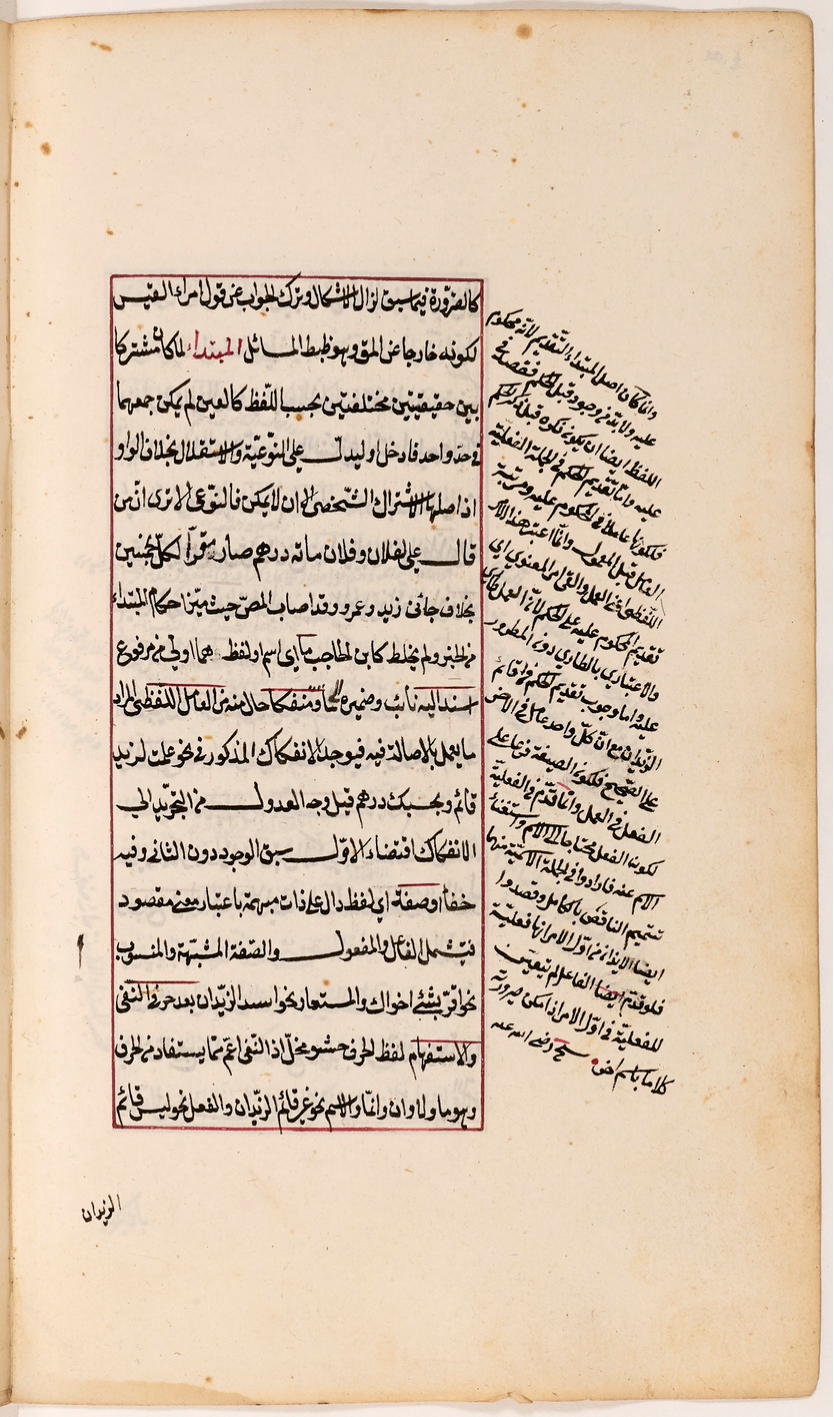 كالضرورة فيما سبق لزال الاشكال وترك الجواب عن قول امراء القيس
لكونه خارجا عن المق وهو ظبط المسائل المبتداء لما كان مشتركا
بين حقيقيتين مختلفتين بحسب اللفظ كالعين لم يكن جمعهما
في حد واحد فادخل او ليدل على النوعية والاستقلال بخلاف الواو
اذ اصلها الاشتراك الشخصى ان لا يمكن فالنوعى الا ترى ان من
قال على لفلان وفلان مائة درهم صار مقرا لكل بخمسين
بخلاف جائنى زيد وعمرو وقد اصاب المص حيث ميز احكام المبتداء
من الخبر ولم يخلط كابن الحاجب ما اى اسم او لفظ هما اولى من مرفوع
اسند اليه نائب وضميره لما او منفكا حال منه من العامل اللفظى المراد
ما يعمل بالاصالة فيه فيوجد الانفكاك المذكور فى نحو علمت لزيد
قائم وبحسبك درهم قيل وجه العدول من التجريد الى
الانفكاك اقتضاء الاول سبق الوجود دون الثانى وفيه
خفأ او صفة اى لفظ دال على ذات مبهمة باعتبار معنى مقصود
فيشمل الفاعل والمفعول والصفة المشبهة والمنسوب
نحو اقريشى اخواك والمستعار نحو اسد الزيدان بعد حرفى النفى
والاستفهام لفظ الحرف حشو مخل اذ النفى اعم مما يستفاد من الحرف
وهو ما ولا وان وانما والاسم نحو غير قائم الزيدان والفعل نحو ليس قائم
الزيدان
وانما كان اصل المبتداء التقديم لانه محكوم
عليه ولا بد من وجوده قبل الحكم فقصد فى
اللفظ ايضا ان يكون ذكره قبل ذكر الحكم
عليه واما تقديم الحكم فى الجملة الفعلية
فلكونه عاملا فى المحكوم عليه ومرتبة
العامل قبل المعمول وانما اعتبر هذا الامر
اللفظى اعنى العمل والغى الامر المعنوى اى
تقديم المحكوم عليه على الحكم لان العمل طارى
والاعتبار بالطارى دون المطرود
عليه واما وجوب تقديم الحكم فى قائم
الزيدان مع ان كل واحد عامل فى الاخر
على الصحيح فلكون الصفة فرعا على
الفعل فى العمل وانما قدم فى الفعلية
لكون الفعل محتاجا الى الاسم واستغناء
الاسم عنه فارادوا فى الجملة الاسمية منها
تتميم الناقص بالكامل وقصدوا
ايضا الايذان من اول الامر انها فعلية
فلو قدم ايضا الفاعل لم يتعين
للفعلية فى اول الامر اذ امكن صيرورته
كلاما باسم اخر رضى الله عنه